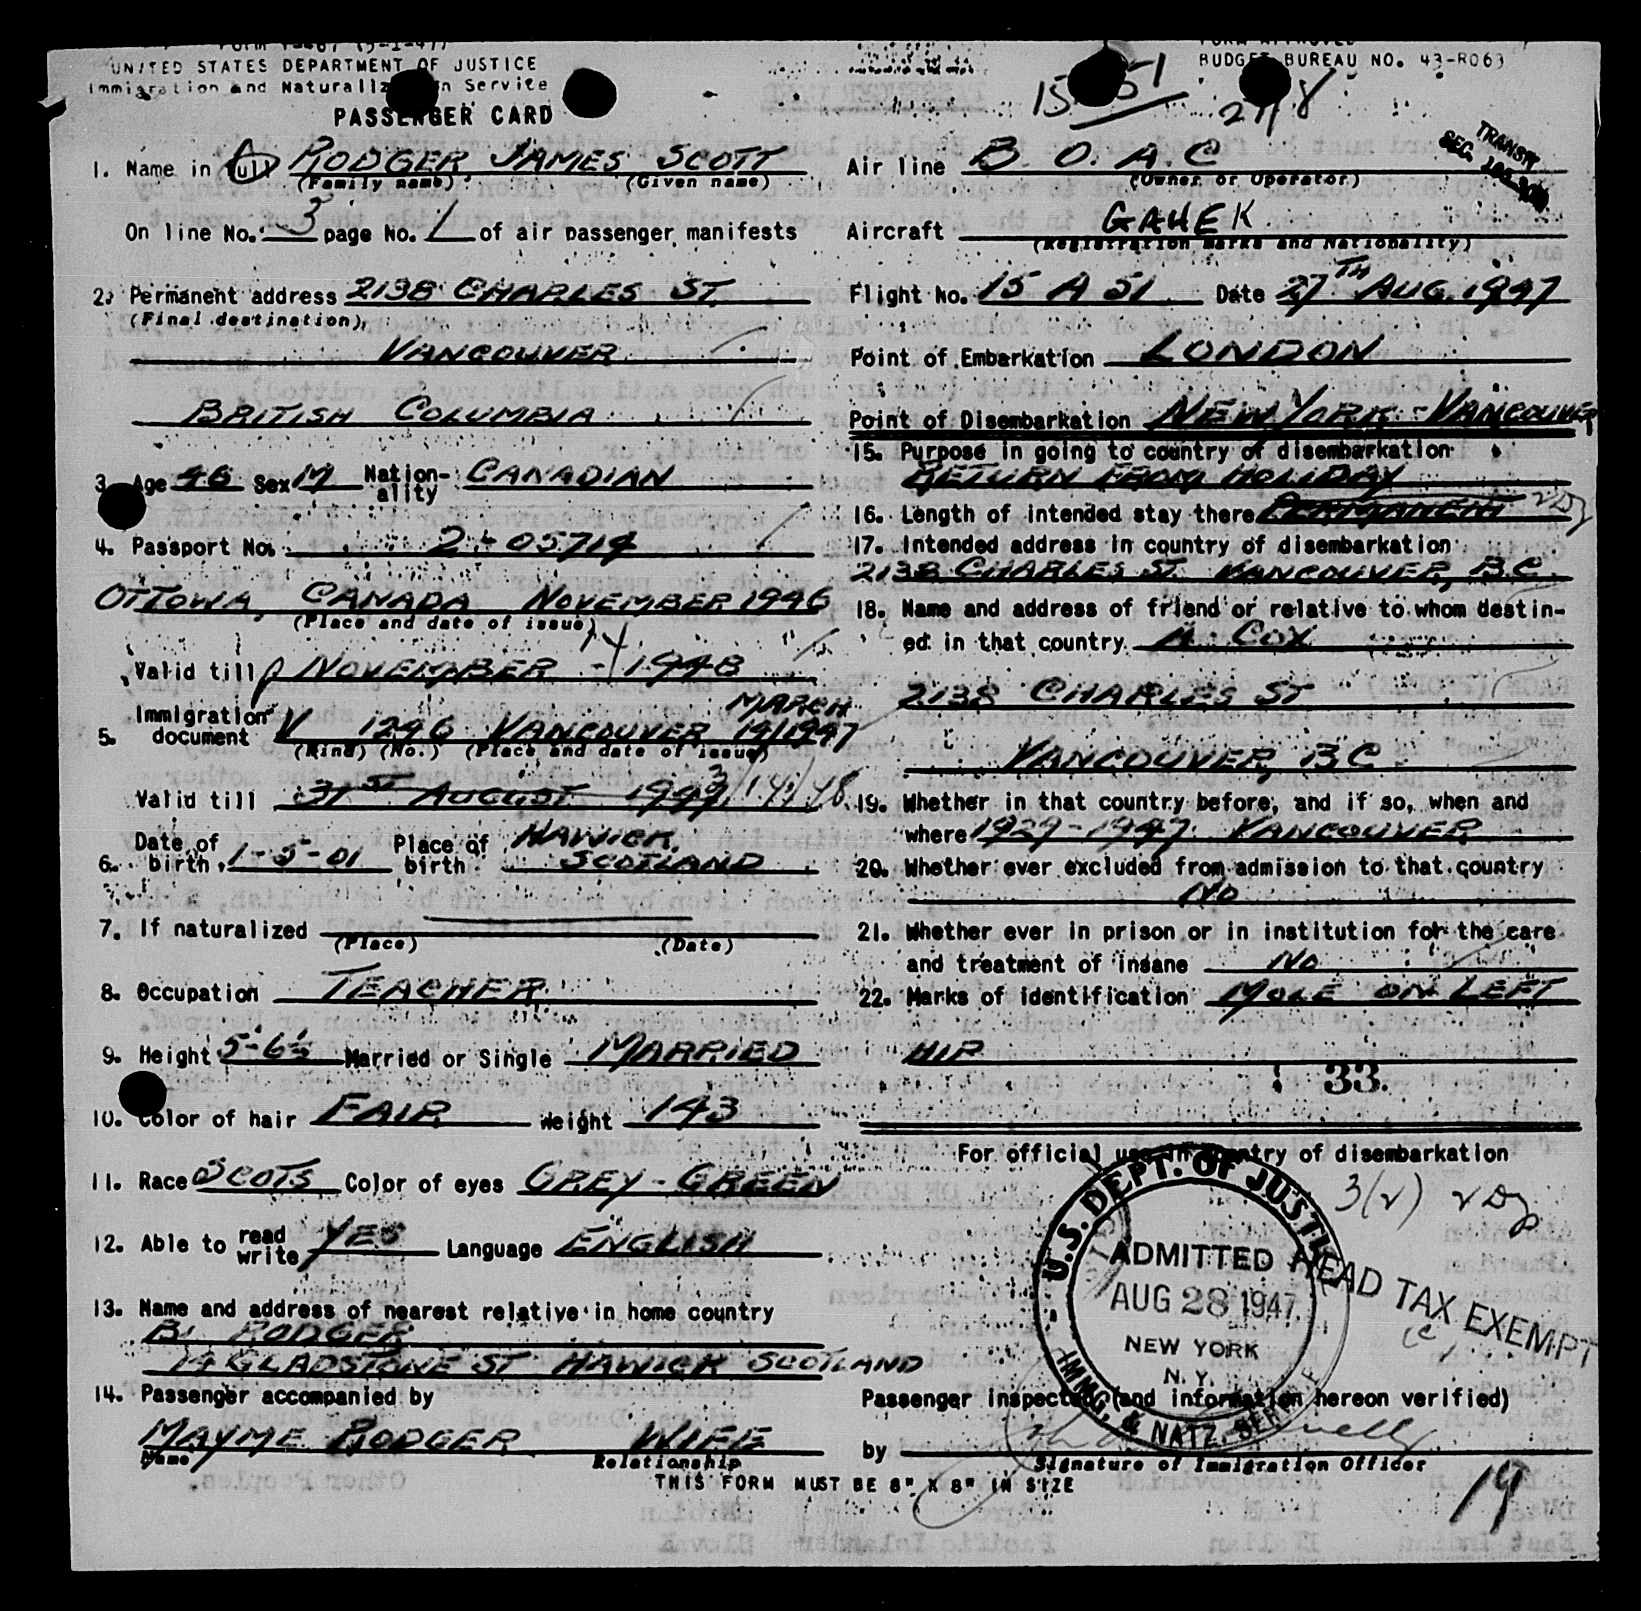 UNITED STATES DEPARTMENT OF JUSTICE
Immigration and Service
PASSENGER CARD
BUDGET BUREAU NO. 43-R063
15 51
1. Name in full RODGER JAMES SCOTT
(Family name) (Given name)
On line No. 3 page No. 1 of air passenger manifests
2. Permanent address 2138 CHARLES ST.
(Final destination)
VANCOUVER
BRITISH COLUMBIA
3. Age 46 Sex M Nation-ality CANADIAN
4. Passport No. 2-05714
OTTOWA, CANADA NOVEMBER 1946
(Place and date of issue)
Valid till NOVEMBER - 14 1948
5. Immigration document V 1296 VANCOUVER MARCH 19/1947
(Kind) (No.) (Place and date of issue)
Valid till 31ST AUGUST 1947 3/14/48
6. Date of birth 1-5-01 Place of birth HAWICK, SCOTLAND
7. If naturalized
(Place) (Date)
8. Occupation TEACHER
9. Height 5-6½ Married or Single MARRIED
10. Color of hair FAIR Weight 143
11. Race SCOTS Color of eyes GREY-GREEN
12. Able to read write YES Language ENGLISH
13. Name and address of nearest relative in home country
B. RODGER
14 GLADSTONE ST HAWICK SCOTLAND
14. Passenger accompanied by
MAYME RODGER WIFE
Name Relationship
THIS FORM MUST BE 8" X 8" IN SIZE
TRANSIT
SEC.
Air line B. O. A. C
(Owner or Operator)
Aircraft GAHEK
(Registration marks and Nationality)
Flight No. 15 A 51 Date 27TH AUG. 1947
Point of Embarkation LONDON
Point of Disembarkation NEW YORK - VANCOUVER
15. Purpose in going to country of disembarkation
RETURN FROM HOLIDAY
16. Length of intended stay there PERMANENT
17. Intended address in country of disembarkation
2138 CHARLES ST VANCOUVER, B.C.
18. Name and address of friend or relative to whom destin-
ed in that country COX
2138 CHARLES ST
VANCOUVER, BC
19. Whether in that country before, and if so, when and
where 1929-1947 VANCOUVER
20. Whether ever excluded from admission to that country
NO
21. Whether ever in prison or in institution for the care
and treatment of insane NO
22. Marks of identification MOLE ON LEFT
HIP
33.
For official use in country of disembarkation
U.S. DEPT. OF JUSTICE
ADMITTED
AUG 28 1947
NEW YORK
N. Y.
IMMG. & NATZ. SER
HEAD TAX EXEMPT
Passenger inspected (and information hereon verified)
by
Signature of Immigration Officer
19